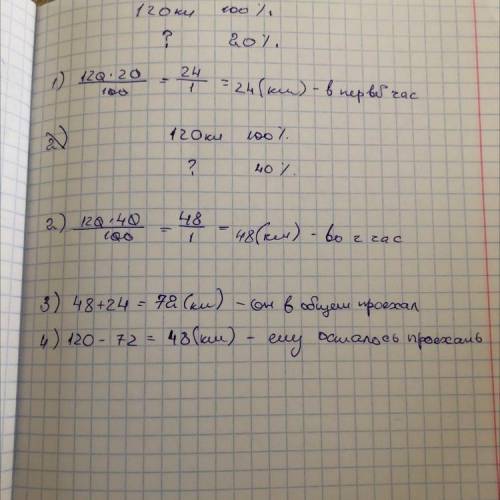 120км 100%.
? 20%.
1) 120·20/100 = 24/1 = 24(км) - в первый час
2)
120км 100%.
? 40%.
2) 120·40/100 = 48/1 = 48(км) - во 2 час
3) 48+24 = 72(км) - он в общем проехал
4) 120-72 = 48(км) - ему осталось проехать